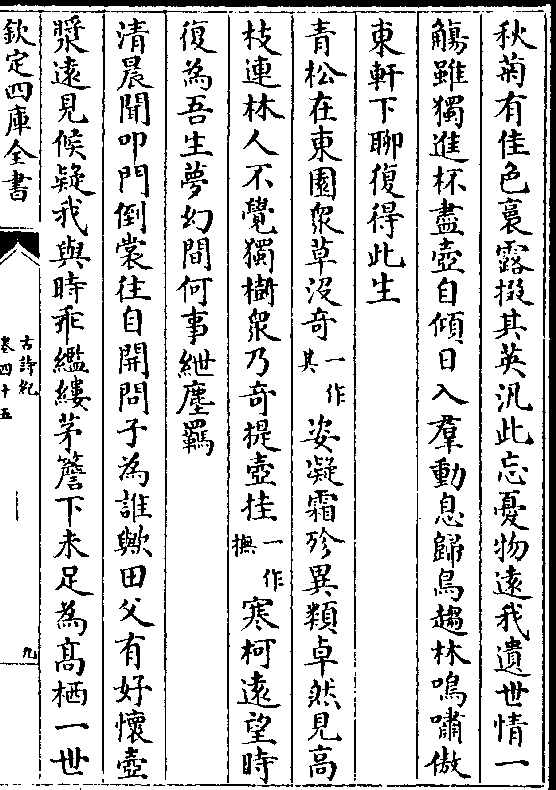 秋菊有佳色裛露掇其英汎此忘憂物遠我遺世情一
觴雖獨進杯盡壺自傾日入羣動息歸鳥趨林鳴嘯傲
東軒下聊復得此生
青松在東園衆草没奇一作其姿凝霜殄異類卓然見高
枝連林人不覺獨樹衆乃奇提壺挂一作撫寒柯遠望時
復為吾生夢幻間何事紲塵羈
清晨聞叩門倒裳往自開問子為誰歟田父有好懷壺
漿逺見候疑我與時乖繿縷茅簷下未足為髙栖一世
欽定四庫全書
古詩紀
卷四十五
九